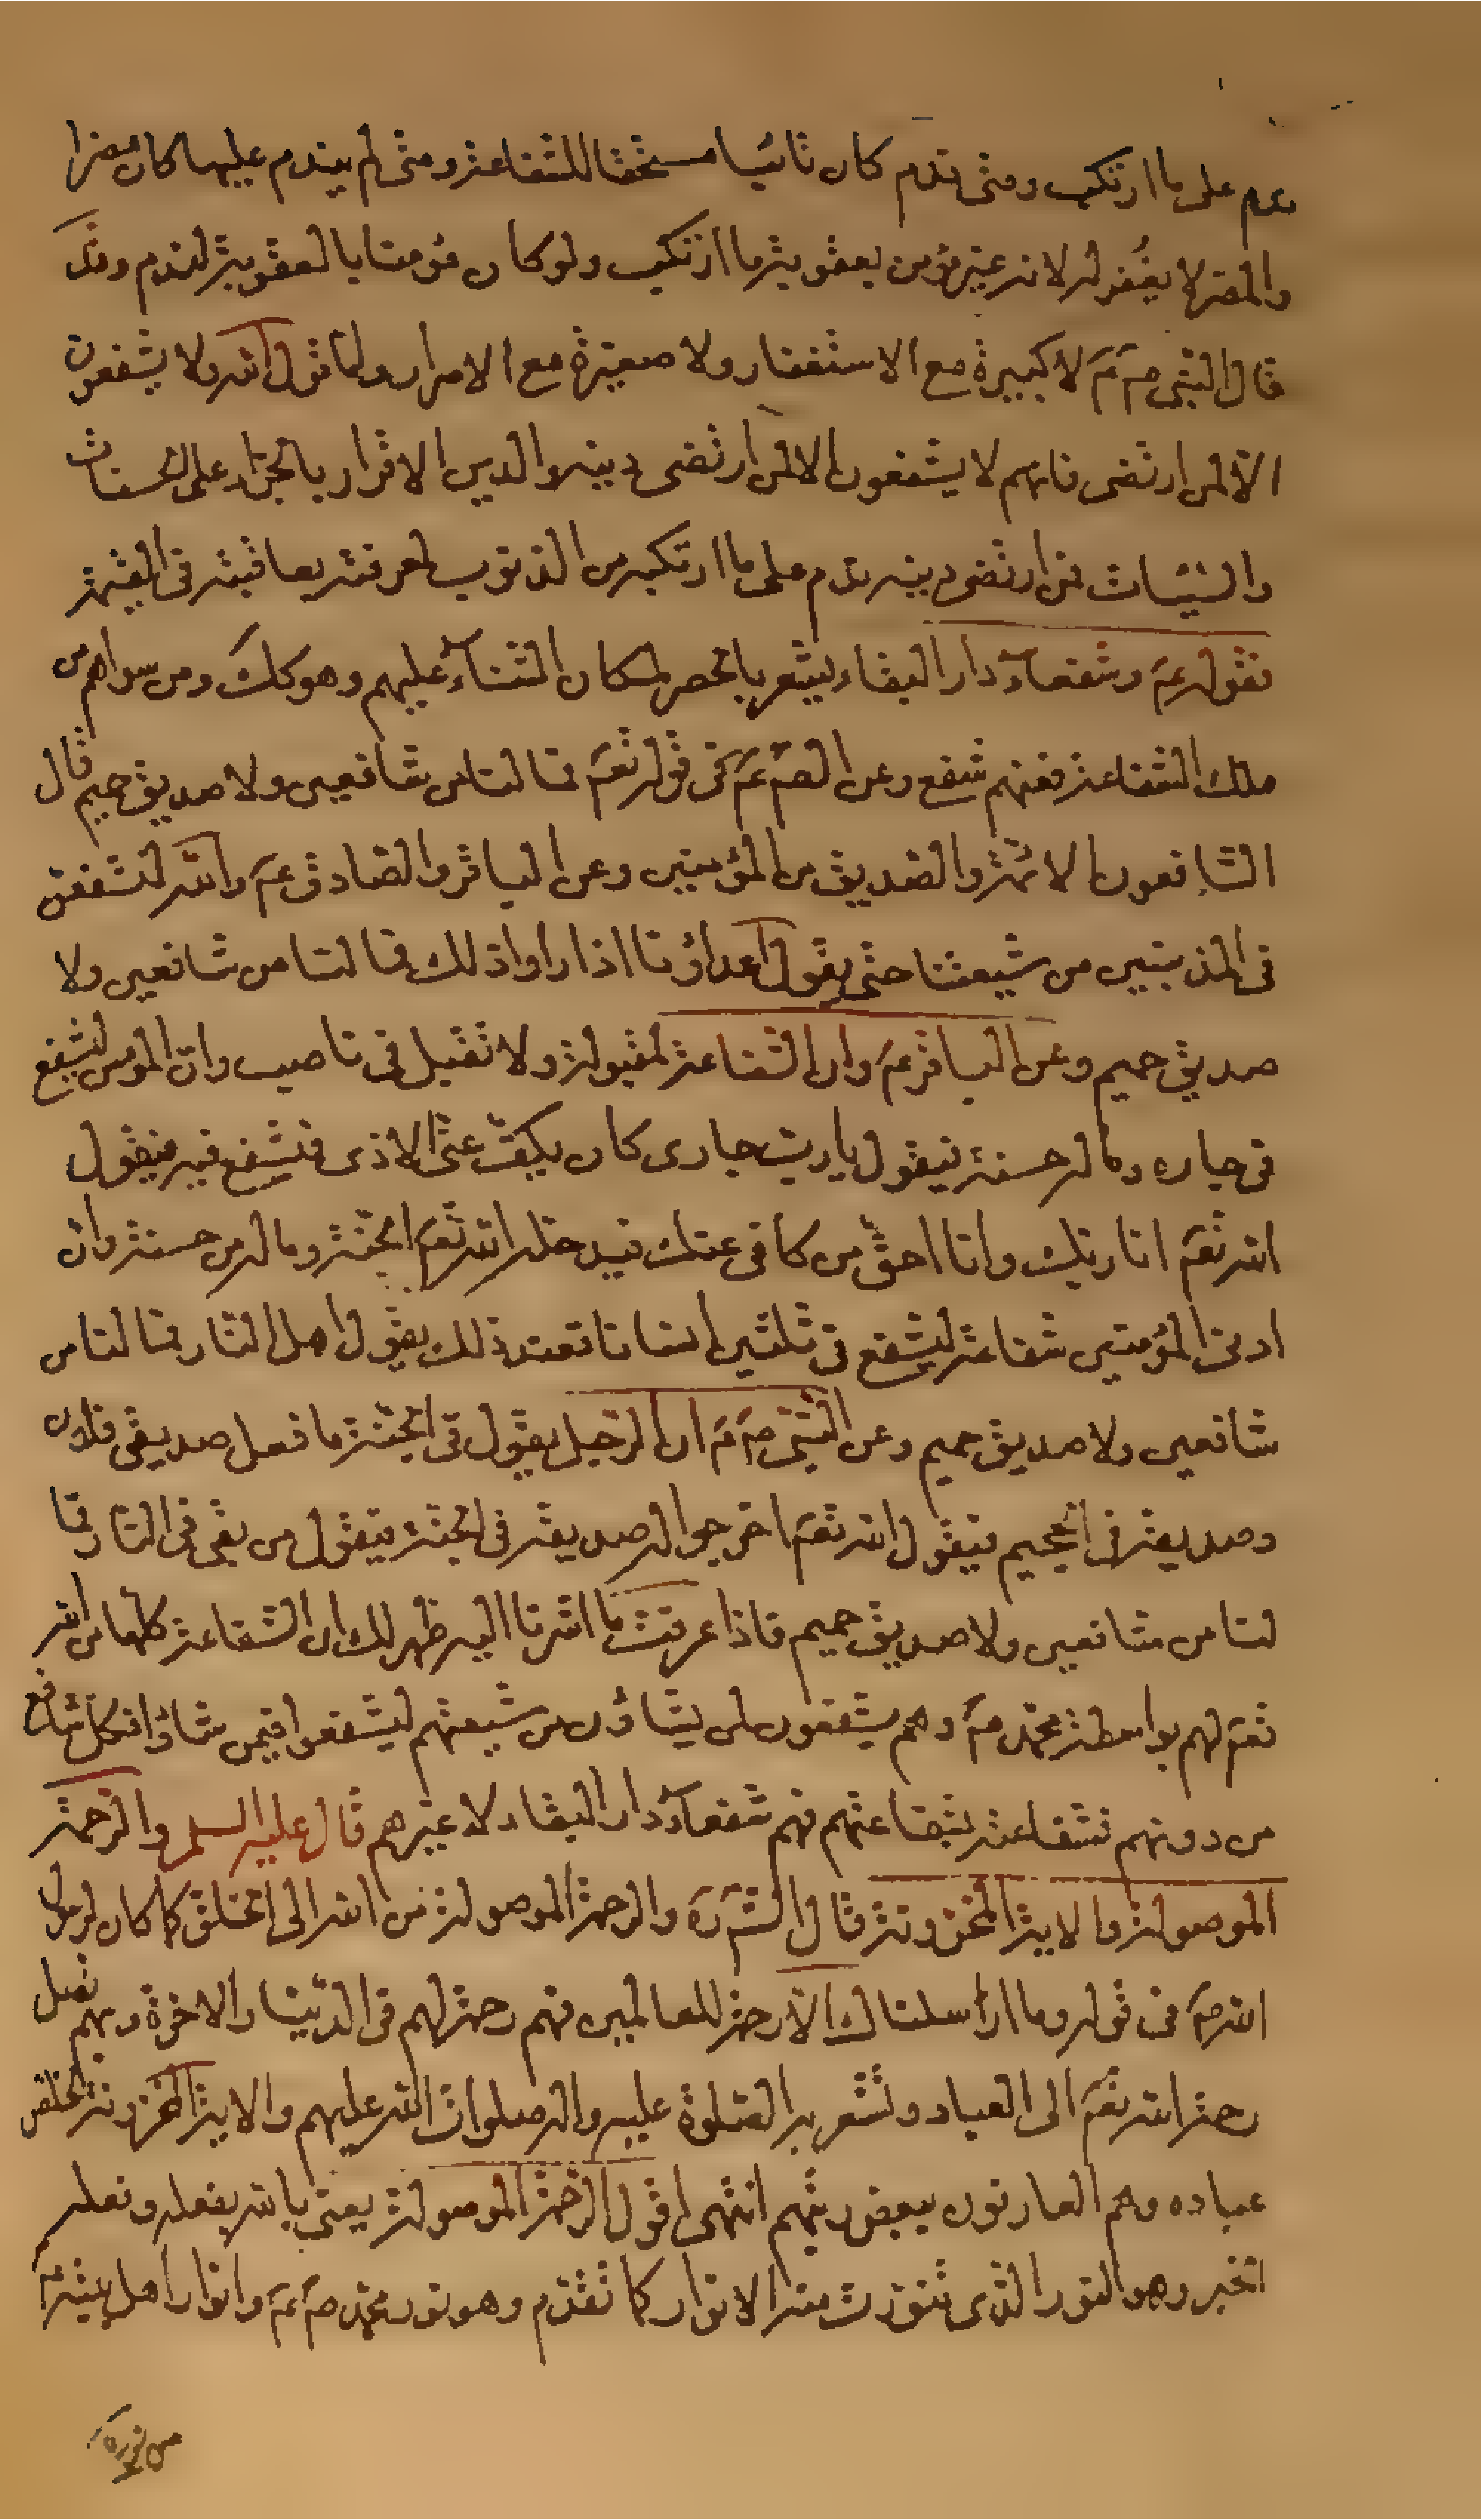 ندم على ما ارتكب ومتى ندم كان تائبا مستحقا للشفاعة ومتى لم يندم عليها كان مصرا
والمصر لا يغفر له لانه غير مؤمن بعقوبة ما ارتكب ولو كان مؤمنا بالعقوبة لندم وقد
قال النبي ص م لا كبيرة مع الاستغفار ولا صغيرة مع الاصرار واما قول الله ولا يشفعون
الا لمن ارتضى فانهم لا يشفعون الا لمن ارتضى دينه والدين الاقرار بالجزاء على الحسنات
والسيئات فمن ارتضى دينه ندم على ما ارتكبه من الذنوب لمعرفته بعاقبته في القيمة
فقوله ع وشفعاء دار البقاء يشعر بالحصر لمكان الثناء عليهم وهو كك ومن سواهم من
ملك الشفاعة فعنهم شفع وعن الصم ع في قوله تعم فما لنا من شافعين ولا صديق حميم قال
الشافعون الائمة والصديق من المؤمنين وعن الباقر والصادق ع والله لنشفعن
في المذنبين من شيعتنا حتى يقول اعداؤنا اذا راوا ذلك فما لنا من شافعين ولا
صديق حميم وعن الباقر ع وان الشفاعة لمقبولة ولا تقبل في ناصب وان المومن ليشفع
في جاره وما له حسنة فيقول يا رب جاري كان يكف عني الاذى فيشفع فيه فيقول
الله تعم انا ربك وانا احق من كافى عنك فيدخله الله تعم الجنة وما له من حسنة وان
ادنى المؤمنين شفاعة ليشفع في ثلثين انسانا فعند ذلك يقول اهل النار فما لنا من
شافعين ولا صديق حميم وعن النبي ص م ان الرجل يقول في الجنة ما فعل صديقي فلان
وصديقه في الجحيم فيقول الله تعم اخرجوا له صديقه في الجنة فيقول من بقى في النار فما
لنا من شافعين ولا صديق حميم فاذا عرفت ما اشرنا اليه ظهر لك ان الشفاعة كلها من الله
تعم لهم بواسطة محمد ص وهم يشفعون لمن يشاؤن من شيعتهم ليشفعوا فيمن شاؤا فكل شافع
من دونهم فشفاعته بشفاعتهم فهم شفعاء دار البقاء لا غيرهم قال عليه السلم والرحمة
الموصولة والاية المخزونة قال الش ره والرحمة الموصولة من الله الى الخلق كما كان لرسول
الله ص في قوله وما ارسلناك الا رحمة للعالمين فهم رحمة لهم في الدنيا والاخرة وبهم تصل
رحمة الله تعم الى العباد وتشعر به الصلوة عليه واله صلوات الله عليهم والاية المخزونة لخلص
عباده وهم العارفون ببعض رتبهم انتهى اقول الرحمة الموصولة يعني بالله بفعله وفعله
الخير وهو النور الذي تنورت منه الانوار كما تقدم وهو نور محمد ص م وانوار اهل بيته ع
من نوره